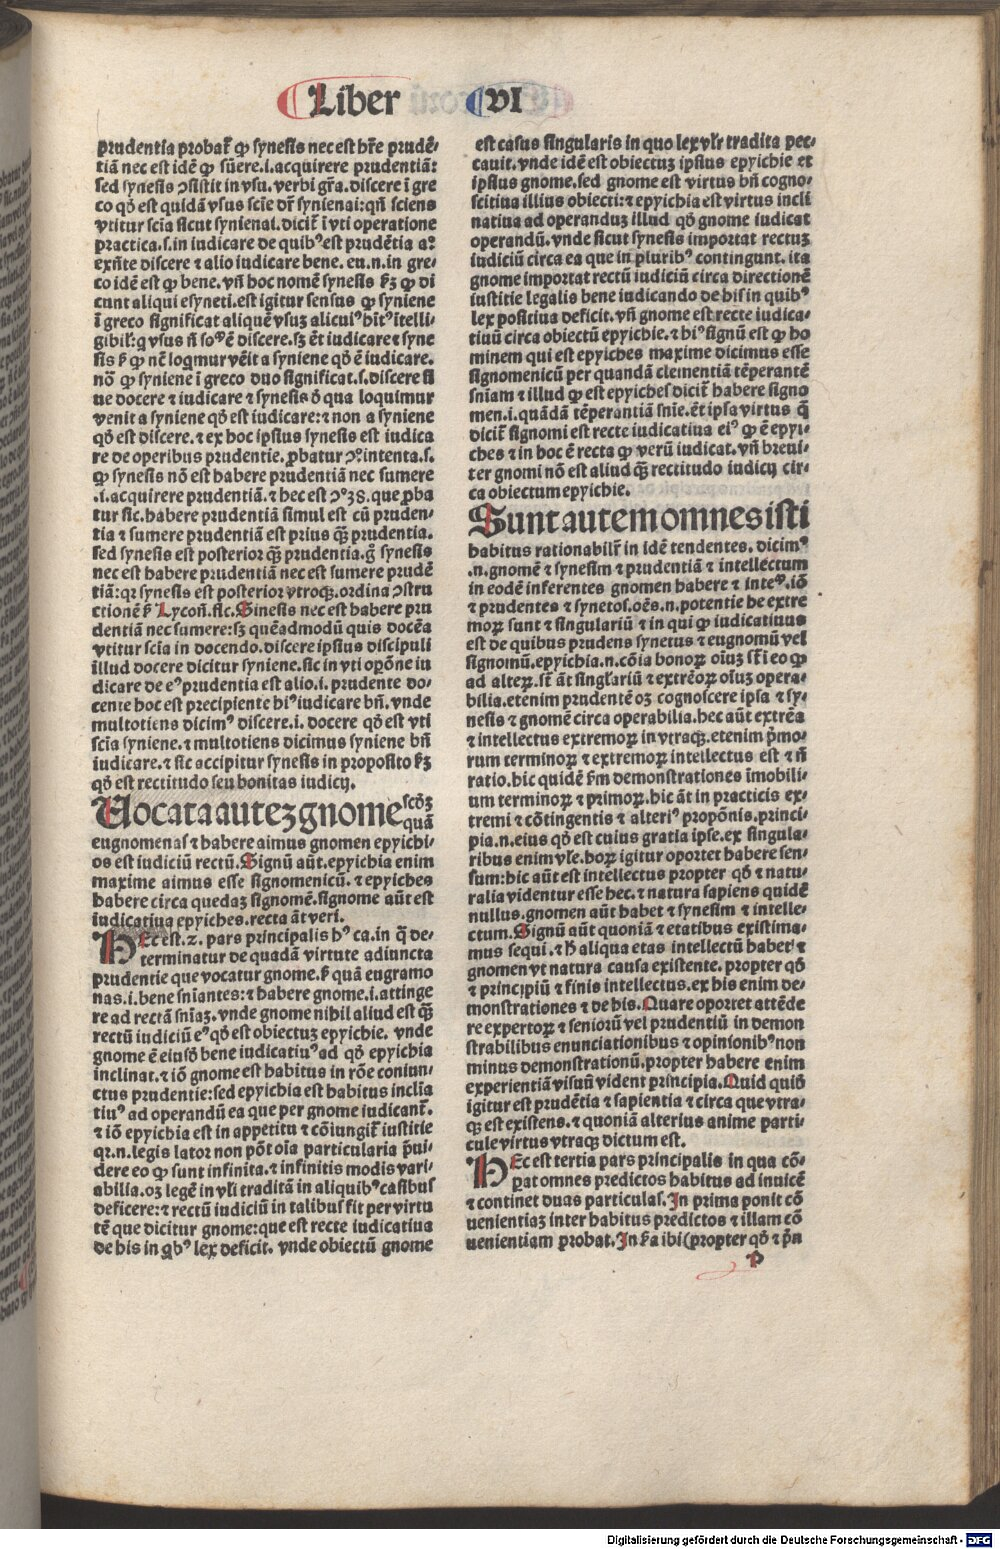 Liber VI
prudentia probat̄ ꝙ synesis nec est hr̄e prudē-
tiā nec est idē ꝙ sūere.i.acquirere prudentiā:
sed synesis ꝯsistit in vsu. verbi gr̄a. discere ī gre
co qđ est quidā vsus scīe dr̄ synienai: qn̄ sciens
vtitur scīa sicut synienai. dicit̄ ī vti operatione
practica.s.in iudicare de quibꝰ est prudētia a?
exn̄te discere ⁊ alio iudicare bene. eu.n.in gre-
co idē est ꝙ bene. vn̄ hoc nomē synesis ꝑꝫ ꝙ di
cunt aliqui esyneti. est igitur sensus ꝙ syniene
ī greco significat aliquē vsuꝫ alicuiꝰ hītꝰ ītelli-
gibil: q vsus n̄ soꝰ ē discere. sꝫ ēt iudicare ⁊ syne
sis ꝑ ꝙ nē loqmur vēit a syniene qđ ē iudicare.
nō ꝙ syniene ī greco duo significat.s.discere si
ue docere ⁊ iudicare ⁊ synesis ō qua loquimur
venit a syniene qđ est iudicare: ⁊ non a syniene
qđ est discere. ⁊ ex hoc ipsius synesis est iudica
re de operibus prudentie. ꝓbatur ꝯꝰ intenta.s.
ꝙ synesis nō est habere prudentiā nec sumere
.i.acquirere prudentiā. ⁊ hec est ꝯꝰ 38. que ꝓba
tur sic. habere prudentiā simul est cū pruden-
tia ⁊ sumere prudentiā est prius qꝫ̄ prudentia.
sed synesis est posterior qꝫ̄ prudentia. g̊ synesis
nec est habere prudentiā nec est sumere prudē
tiā: qꝛ synesis est posterior vtroqꝫ. ordina ꝯstru
ctionē ꝑ Lycon̄. sic. Sinesis nec est habere pru
dentiā nec sumere: sꝫ quēadmodū quis docēs
vtitur scīa in docendo. discere ipsius discipuli
illud docere dicitur syniene. sic in vti oꝑōne iu
dicare de eꝰ prudentia est alio.i.prudente do-
cente hoc est precipiente hiꝰ iudicare bn̄. vnde
multotiens dicimꝰ discere.i.docere qđ est vti
scīa syniene. ⁊ multotiens dicimus syniene bn̄
iudicare. ⁊ sic accipitur synesis in proposito ꝑꝫ
qđ est rectitudo seu bonitas iudicij.
Uocata auteꝫ gnome scđꝫ quā
eugnomenas ⁊ habere aimus gnomen epyichi-
os est iudiciū rectū. Signū aūt. epyichia enim
maxime aimus esse signomenicū. ⁊ epyiches
habere circa quedaꝫ signomē. signome aūt est
iudicatiua epyiches. recta āt veri.
HEc est.2. pars principalis hꝰ ca. in q̄ de-
terminatur de quadā virtute adiuncta
prudentie que vocatur gnome. ꝑ quā eugramo
nas.i.bene sniantes: ⁊ habere gnome.i.attinge
re ad rectā sniaꝫ. vnde gnome nihil aliud est qꝫ̄
rectū iudiciū eꝰ qđ est obiectuꝫ epyichie. vnde
gnome ē eiusđ bene iudicatiuꝰ ad qđ epyichia
inclinat. ⁊ iō gnome est habitus in rōe coniun-
ctus prudentie: sed epyichia est habitus inclīa
tiuꝰ ad operandū ea que per gnome iudicant̄.
⁊ iō epyichia est in appetitu ⁊ cōiungit̄ iustitie
qꝛ.n.legis lator non pōt oīa particularia p̄ui-
dere eo ꝙ sunt infinita. ⁊ infinitis modis vari-
abilia. oꝫ legē in vl̄i traditā in aliquibꝰ casibus
deficere: ⁊ rectū iudiciū in talibus fit per virtu
tē que dicitur gnome: que est recte iudicatiua
de his in qbꝰ lex deficit. vnde obiectū gnome
est casus singularis in quo lex vl̄r tradita pec-
cauit. vnde idē est obiectuꝫ ipsius epyichie et
ipsius gnome. sed gnome est virtus bn̄ cogno-
scitiua illius obiecti: ⁊ epyichia est virtus incli
natiua ad operanduꝫ illud qđ gnome iudicat
operandū. vnde sicut synesis importat rectuꝫ
iudiciū circa ea que in pluribꝰ contingunt. ita
gnome importat rectū iudiciū circa directionē
iustitie legalis bene iudicando de his in quibꝰ
lex positiua deficit. vn̄ gnome est recte iudica-
tiuū circa obiectū epyichie. ⁊ hiꝰ signū est ꝙ ho
minem qui est epyiches maxime dicimus esse
signomenicū per quandā clementiā tēperantē
sniam ⁊ illud ꝙ est epyiches dicit̄ habere signo
men.i.quādā tēperantiā snie. ēt ipsa virtus q̄
dicit̄ signomi est recte iudicatiua eiꝰ ꝙ ē epyi-
ches ⁊ in hoc ē recta ꝙ verū iudicat. vn̄ breui-
ter gnomi nō est aliud qꝫ̄ rectitudo iudicij cir-
ca obiectum epyichie.
Sunt autem omnes isti
habitus rationabilr̄ in idē tendentes. dicimꝰ
.n.gnomē ⁊ synesim ⁊ prudentiā ⁊ intellectum
in eodē inferentes gnomen habere ⁊ inteꝰ. iō
⁊ prudentes ⁊ synetos. oēs.n.potentie he extre
moꝝ sunt ⁊ singulariū ⁊ in qui ꝙ iudicatiuus
est de quibus prudens synetus ⁊ eugnomū vel
signomū. epyichia.n.cōia bonoꝝ oīuꝫ sūt eo ꝙ
ad alteꝝ. sūt āt singlariū ⁊ extrēoꝝ oīuꝫ opera-
bilia. etenim prudentē oꝫ cognoscere ipsa ⁊ sy-
nesis ⁊ gnomē circa operabilia. hec aūt extrēa
⁊ intellectus extremoꝝ in vtraqꝫ. etenim p̄mo-
rum terminoꝝ ⁊ extremoꝝ intellectus est ⁊ n̄
ratio. hic quidē ẜm demonstrationes īmobili-
um terminoꝝ ⁊ primoꝝ. hic āt in practicis ex-
tremi ⁊ cōtingentis ⁊ alteriꝰ propōnis. princi-
pia.n.eius qđ est cuius gratia ipse. ex singula-
ribus enim vl̄e. hoꝝ igitur oportet habere sen-
sum: hic aūt est intellectus propter qđ ⁊ natu-
ralia videntur esse hec. ⁊ natura sapiens quidē
nullus. gnomen aūt habet ⁊ synesim ⁊ intelle-
ctum. Signū aūt quoniā ⁊ etatibus existima-
mus sequi. ⁊ ħ aliqua etas intellectū habet ⁊
gnomen vt natura causa existente. propter qđ
⁊ principiū ⁊ finis intellectus. ex his enim de-
monstrationes ⁊ de his. Quare oportet attēde
re expertoꝝ ⁊ senioru̅ vel prudentiū in demon
strabilibus enunciationibus ⁊ opinionibꝰ non
minus demonstrationū. propter habere enim
experientiā visuū vident principia. Quid quiđ
igitur est prudētia ⁊ sapientia ⁊ circa que vtra-
qꝫ est existens. ⁊ quoniā alterius anime parti-
cule virtus vtraqꝫ dictum est.
HEc est tertia pars principalis in qua cō-
pat omnes predictos habitus ad inuicē
⁊ continet duas particulas. In prima ponit cō
uenientiaꝫ inter habitus predictos ⁊ illam cō
uenientiam probat. In ẜa ibi (propter qđ ⁊ p̄n
P
Digitalisierung gefördert durch die Deutsche Forschungsgemeinschaft - DFG